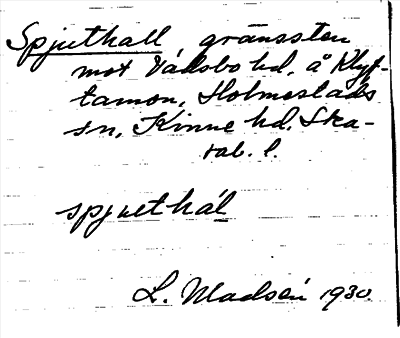 Spjuthall gränssten
mot Vadsbo hd. å Klyf-
tamon, Holmestads
sn, Kinne hd. Ska-
rab. l.
spjuethál
L. Madsén 1930.